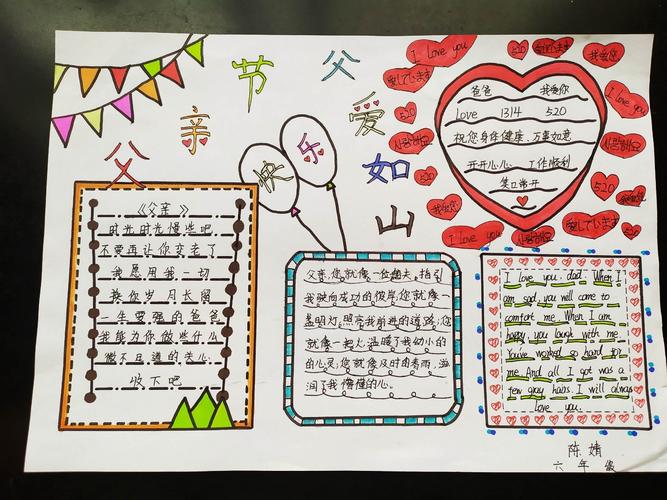 父亲节快乐
父爱如山
《父亲》
时光时光慢些吧
不要再让你变老了
我愿用我一切
换你岁月长留
一生要强的爸爸
我能为你做些什么
微不足道的关心
收下吧
父亲,您就像一位船夫,指引
我驶向成功的彼岸;您就像一
盏明灯,照亮我前进的道路;您
就像一把火,温暖了我幼小的
的心灵;您就像及时的春雨,滋
润了我懵懂的心。
爸爸 我爱你
Love 1314 520
祝您身体健康、万事如意
开开心心、工作顺利
笑口常开
I love you
520
我爱您
愛しています
I love you
520
사랑해요
520
我爱您
I love you
愛しています
I love you. dad. When I
am sad, you will come to
comfort me. When I am
happy you laugh with me
You've worked so hard for
me. And all I got was a
few gray hairs. I will always
Love you.
陈婧
六年级